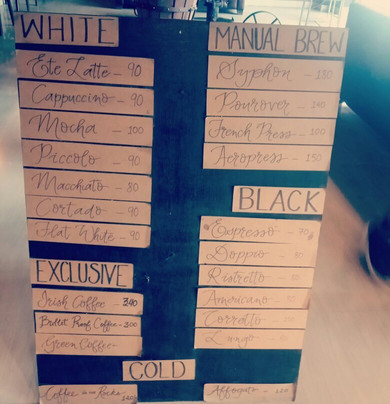 WHITE
Ete Latte - 90
Cappuccino - 90
Mocha - 100
Piccolo - 90
Macchiato - 80
Cortado - 90
Flat White - 90
EXCLUSIVE
Irish Coffee - 340
Bullet Proof Coffee - 300
Green Coffee -
MANUAL BREW
Syphon - 180
Pourover - 140
French Press - 100
Aeropress - 150
BLACK
Espresso - 70
Doppio -
Ristretto -
Americano -
Corretto
Lungo
COLD
Coffee Rocks
Affogato -